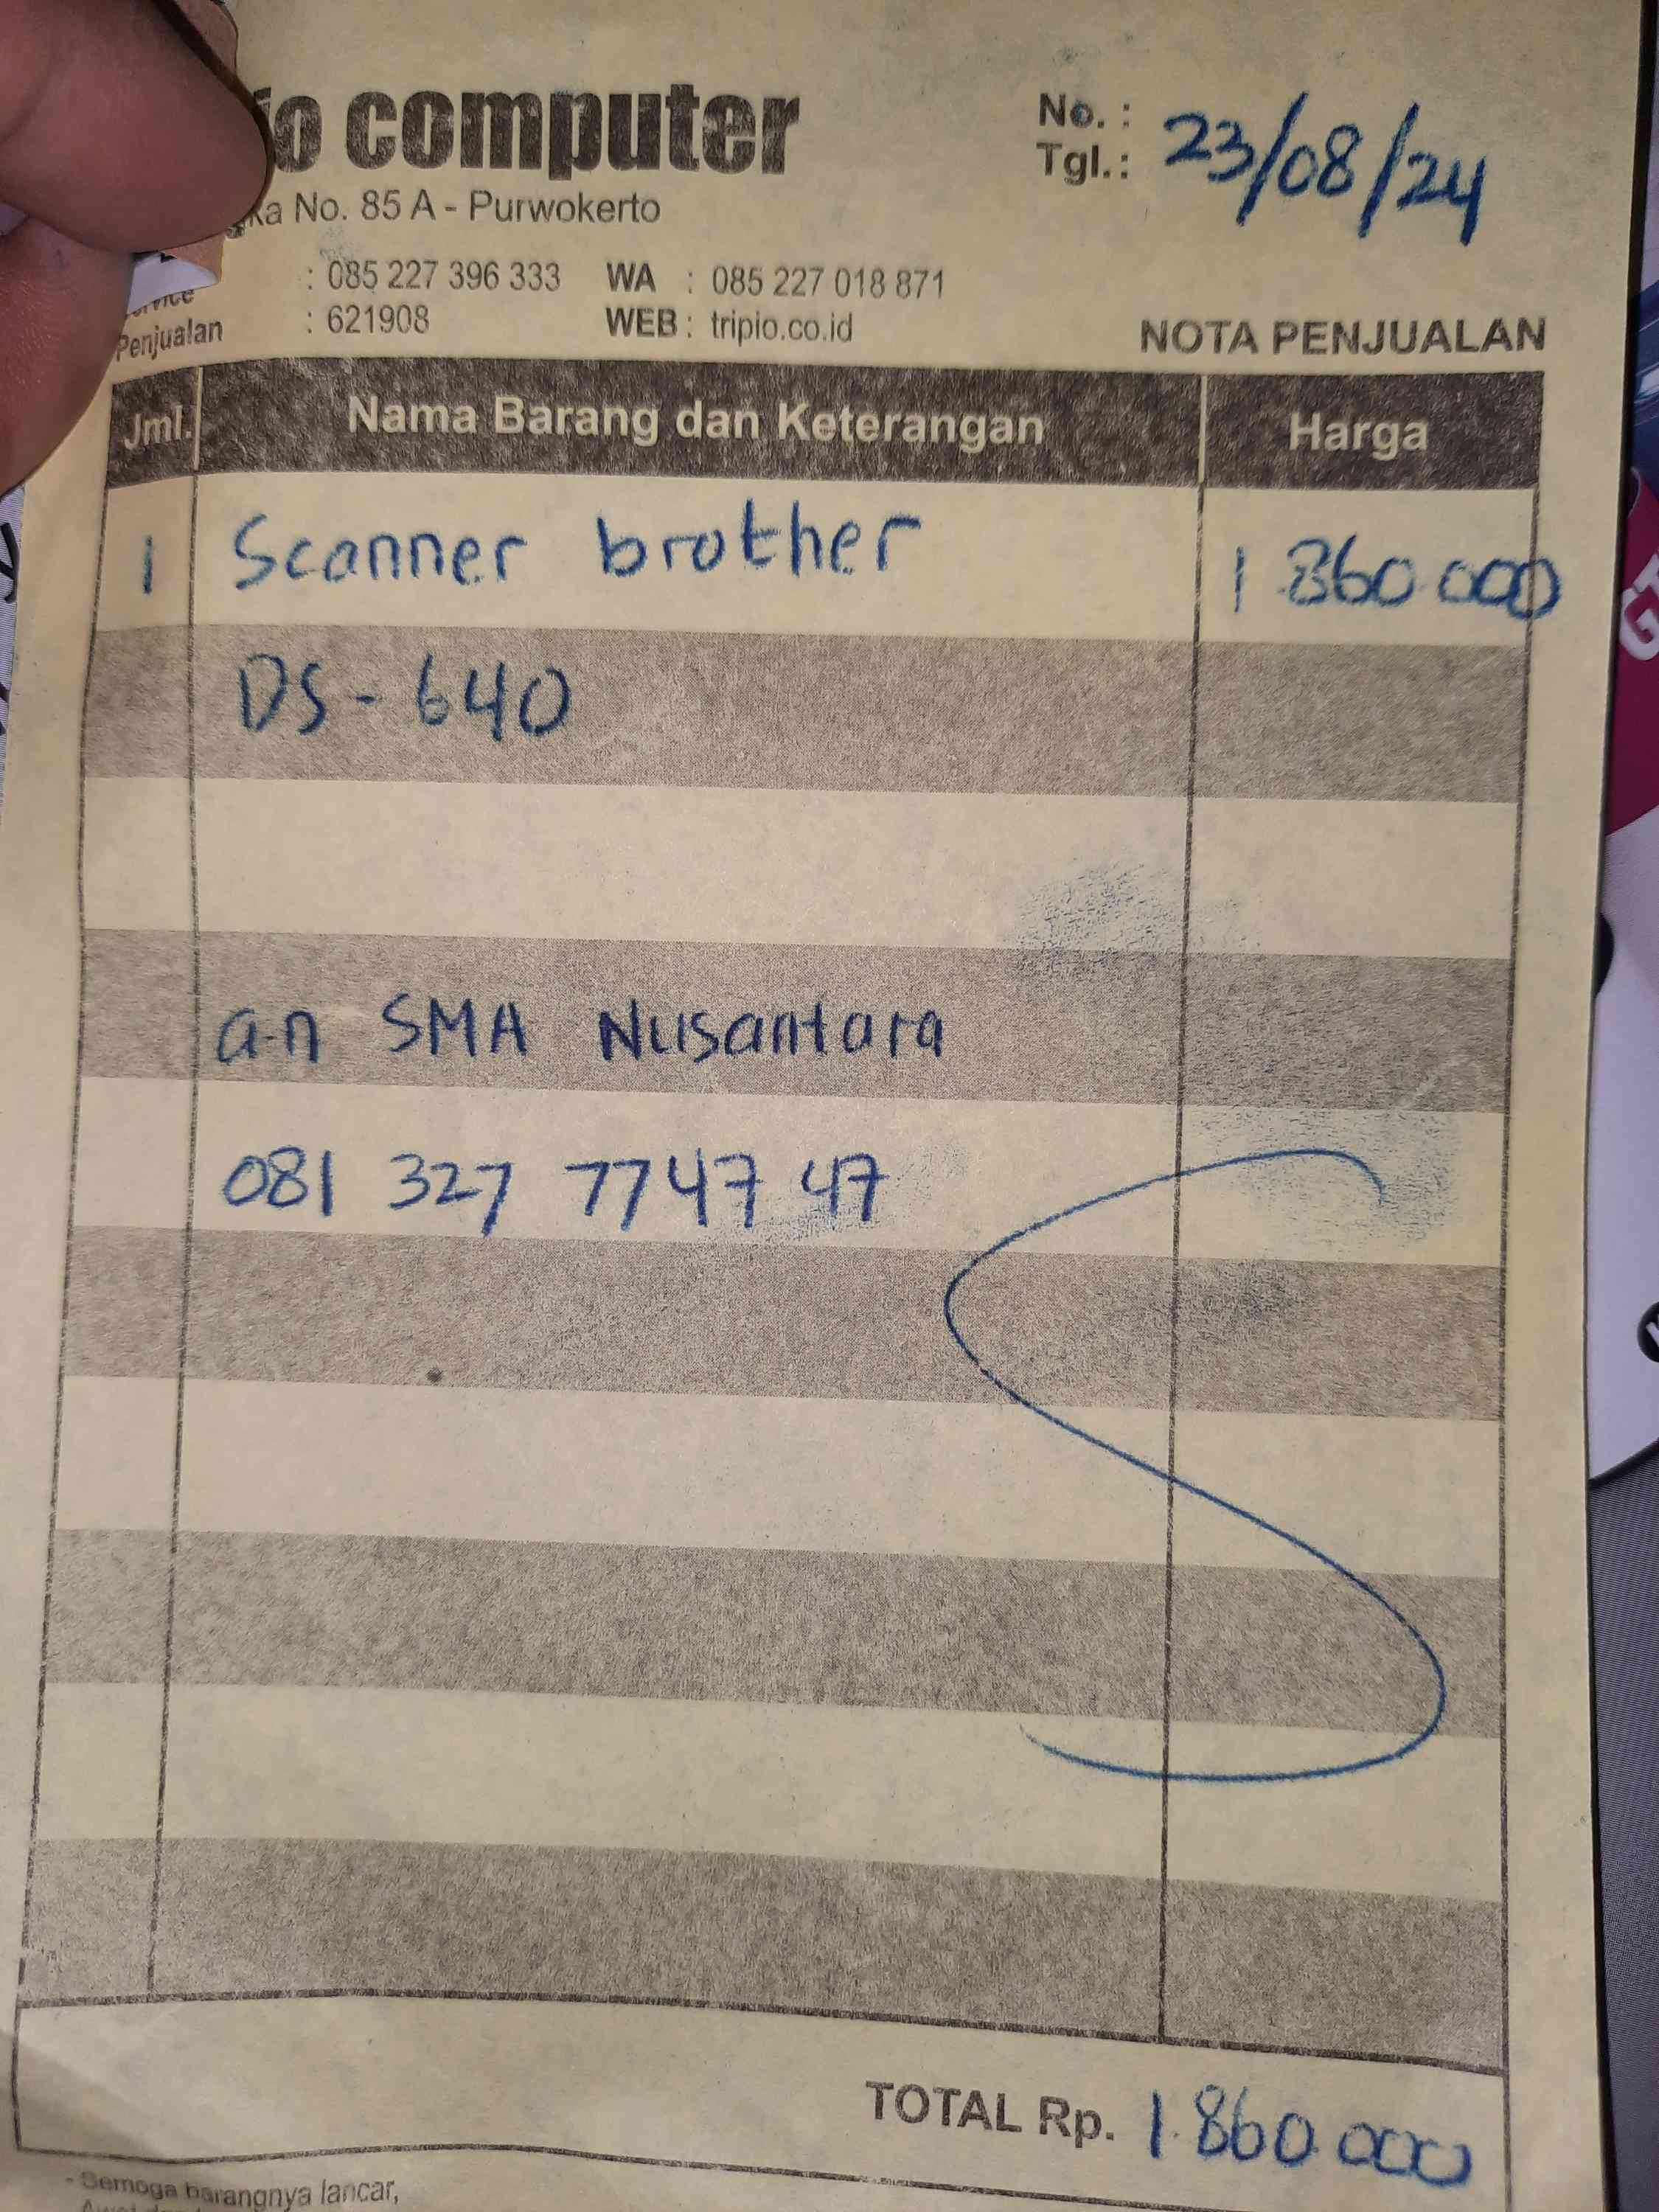 computer
No. :
Tgl. : 23/08/24
No. 85 A - Purwokerto
: 085 227 396 333 WA : 085 227 018 871
Penjualan : 621908 WEB : tripio.co.id
NOTA PENJUALAN
Jml. Nama Barang dan Keterangan Harga
1 Scanner brother 1.860.000
DS-640
a.n SMA Nusantara
081 327 7747 47
TOTAL Rp. 1.860.000
- Semoga barangnya lancar,